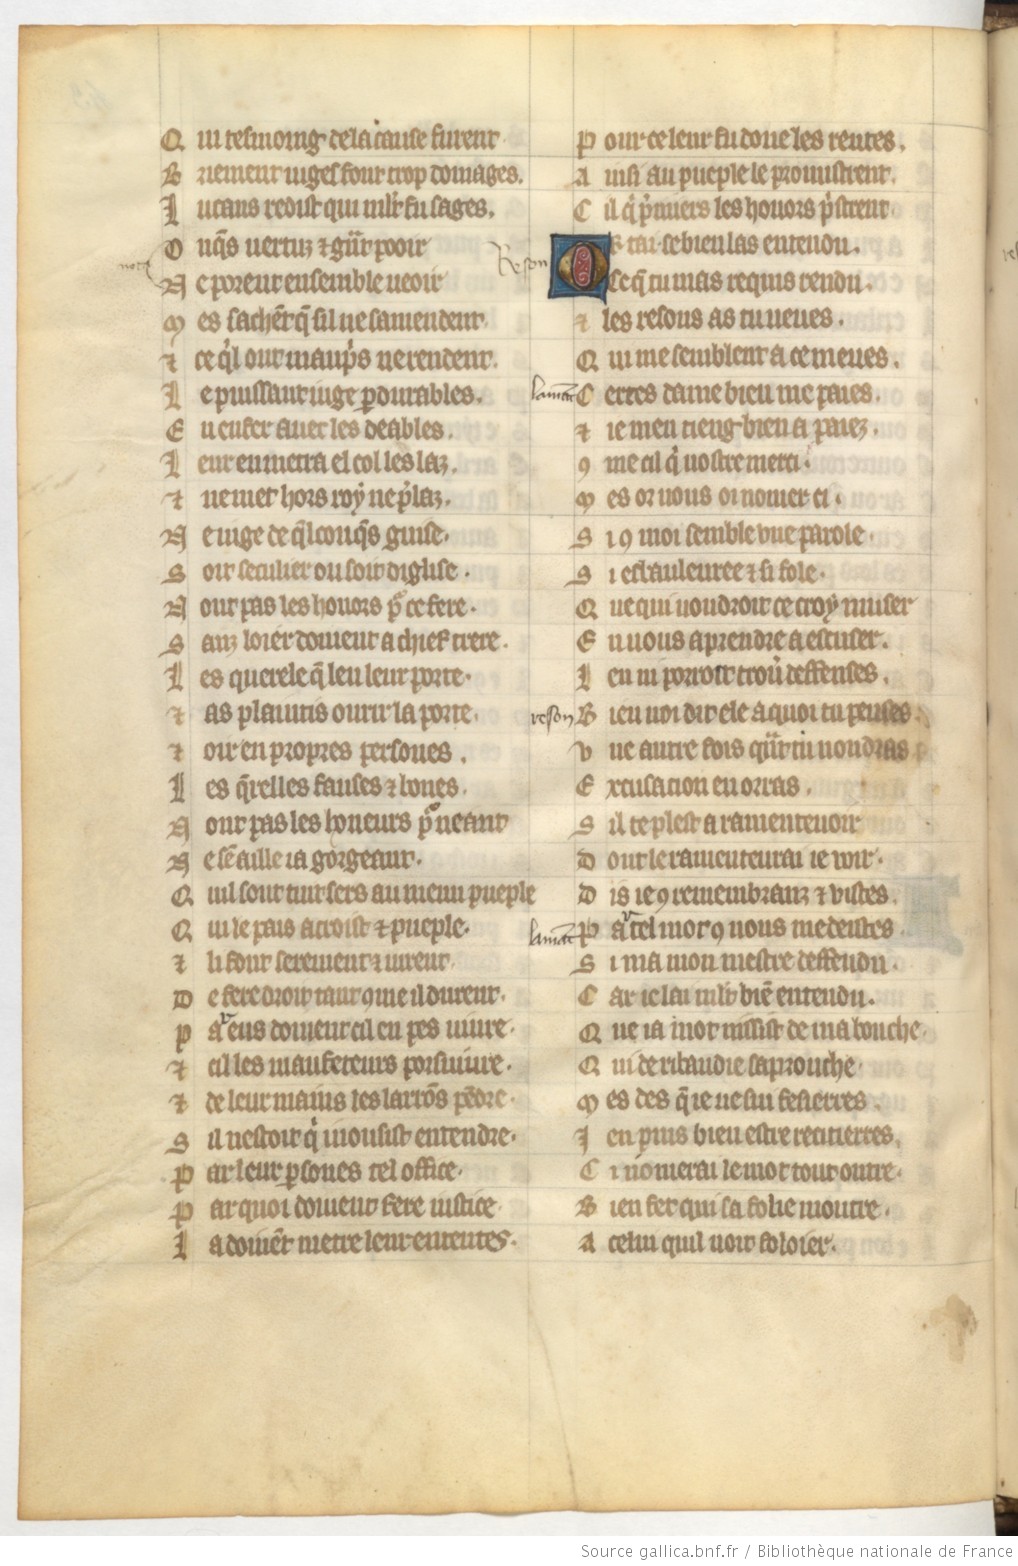 Q ui tesmoing de la cause furent
B riement iuges font trop domages.
L ucans redist qui mlt fu sages.
O nqs uertuz ⁊ gnt pooir
nota
N e porent ensemble ueoir
M es sachent q̃ sil ne samendent
⁊ ce ql ont maupͥs ne rendent.
L e puissant iuge ꝑdurables.
E n enfer auec les deables.
L eur en metra el col les laz.
⁊ ne met hors roy ne p̃laz.
N e iuge de q̃lconq̃s guise.
S oit seculier ou soit diglise.
N ont pas les honors pͦ ce fere.
S anz loier doiuent a chief trere.
L es querele q̃ len leur porte.
⁊ as plaintis ouurir la porte.
⁊ oir en propres persones.
L es q̃relles fauses ⁊ bones.
N ont pas les honeurs pͦ neant
N e sẽ aille ia gorgeant.
Q uil sont tuit sers au menu pueple
Q ui le pais acroist ⁊ pueple.
⁊ li font serement ⁊ iurent
D e fere droit tant ꝯme il durent.
P ar eus doiuent cil en pes uiure.
⁊ cil les maufeteurs porsuiure.
⁊ de leur mains les larrõs pẽdre.
S il nestoit q̇ uousist entendre.
P ar leur ꝑsones tel office.
P ar quoi doiuent fere iustice
L a doiuẽt metre leur ententes.
P our ce leur fu done les rentes.
A insi au pueple le promistrent.
C il q̇ pͥmiers les honors pͥstrent
Reson
O R tai se bien las entendu.
Ce q̃ tu mas requis rendu.
⁊ les resons as tu ueues.
Q ui me semblent a ce meues.
lamant
C ertes dame bien me paies.
⁊ ie men tieng bien a paiez.
ꝯ me cil q̇ uostre merci.
M es or uous oi nomer ci.
S i ꝯ moi semble vne parole.
S i esbauleuree ⁊ si fole.
Q ue qui uoudroit ce croy muser
E n uous aprendre a escuser.
L en ni porroit trouũ deffenses.
reson
B ien uoi dit ele a quoi tu penses.
V ne autre fois qñt tu uoudras
E xcusacion en orras.
S il te plest a ramentenoir
D ont le ramenteurai ie voir.
D is ie ꝯ remembranz ⁊ vistes.
lamant
P ar tel mot ꝯ uous me deistes
S i ma mon mestre deffendu.
C ar ie lai mlt biẽ entendu.
Q ue ia mot nissist de ma bouche.
Q ui de ribaudie saprouche.
M es des q̃ ie ne sui feserres.
J en puis bien estre recitierres.
C i nõmerai le mot tout outre.
B ien fet qui sa folie moutre.
A celui quil uoit foloier.
Source gallica.bnf.fr / Bibliothèque nationale de France